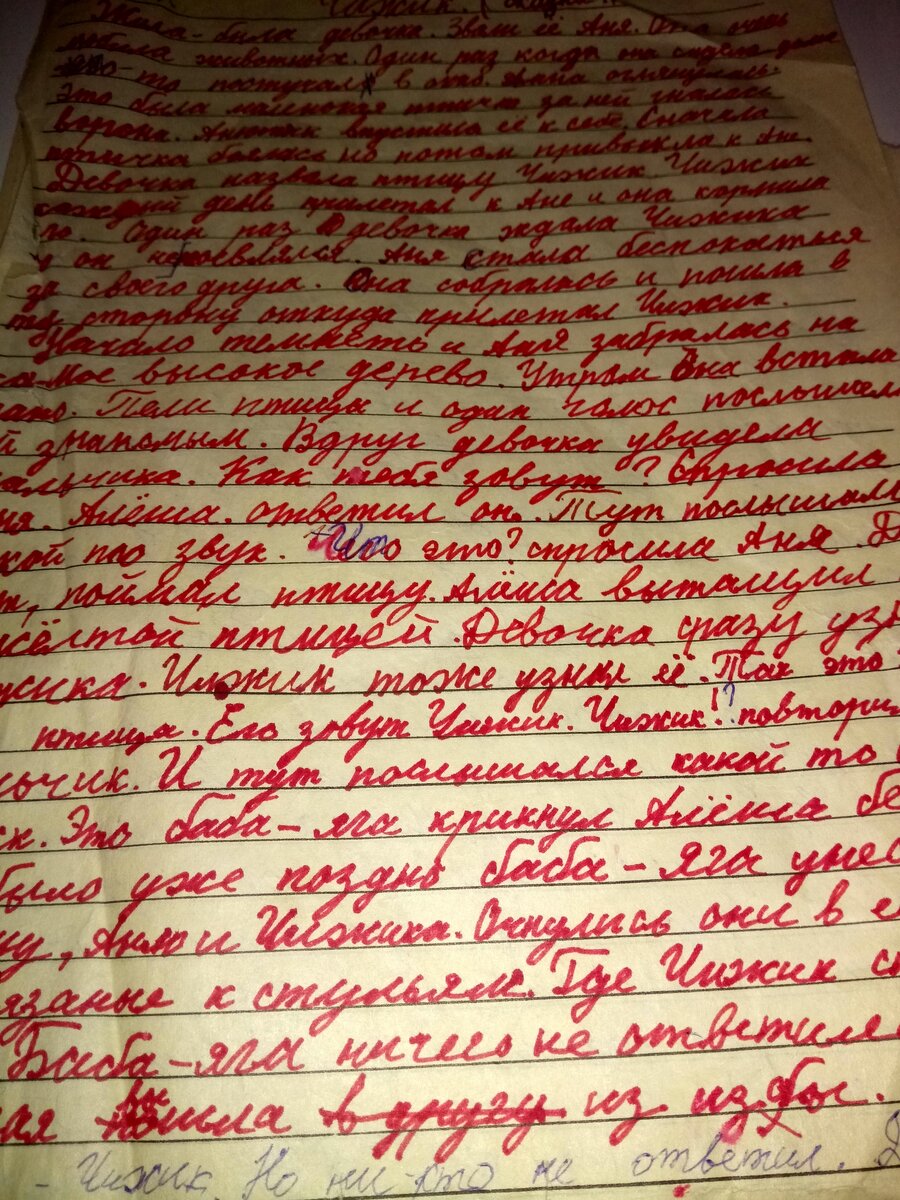 Чижик. (сказка
Жила-была девочка. Звали её Аня. Она очень
любила животных. Один раз когда она сидела дома
кто-то постучал в окно. Аня оглянулась.
Это была маленькая птичка за ней гналась
ворона. Анютик впустила её к себе. Сначала
птичка боялась но потом привыкла к Ане.
Девочка назвала птицу Чижик. Чижик
каждый день прилетал к Ане и она кормила
его. Один раз девочка ждала Чижика
а он не поевлялся. Аня стала беспокаться
за своего друга. Она собралась и пошла в
ту сторону откуда прилетал Чижик.
Начало темнеть и Аня забралась на
самое высокое дерево. Утром она встала
рано. Пели птицы и один голос послышал
ей знакомым. Вдруг девочка увидела
мальчика. Как тебя зовут? Спросила
Аня. Алёша. ответил он. Тут послышал
кой то звук. Что это? спросила Аня.
поймал птицу. Алёша вытащил
жёлтой птицей. Девочка сразу уз
жика. Чижик тоже узнал её. Так это
птица. Его зовут Чижик. Чижик!? повтори
льчик. И тут послышался какой то
ск. Это баба-яга крикнул Алёша бе
было уже поздно баба-яга унес
шу, Аню и Чижика. Очнулись они в е
язаные к стульям. Где Чижик с
Баба-яга ничего не ответила
ая вышла в другу из избы.
- Чижик. Но ни-кто не ответил.